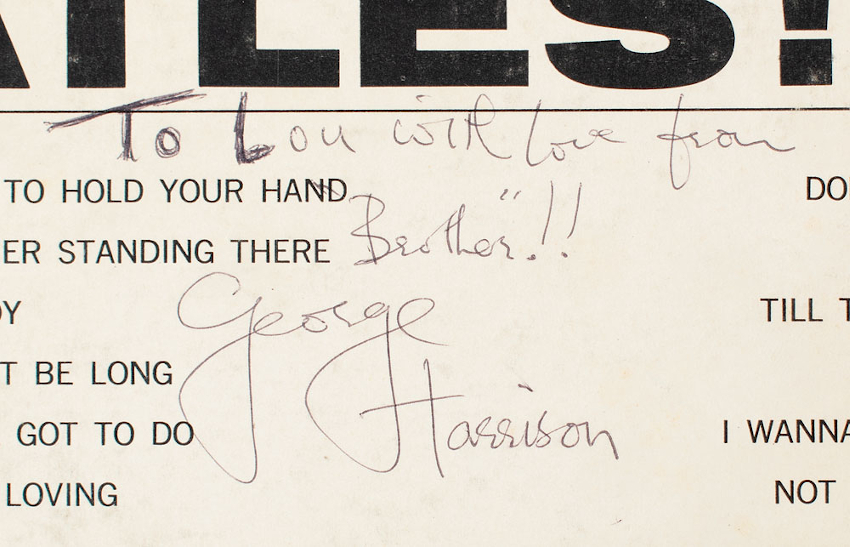 ATLES!
To Lou with love from
TO HOLD YOUR HAND DO
ER STANDING THERE "Brother"!!
OY George TILL T
T BE LONG
GOT TO DO Harrison I WANNA
LOVING NOT